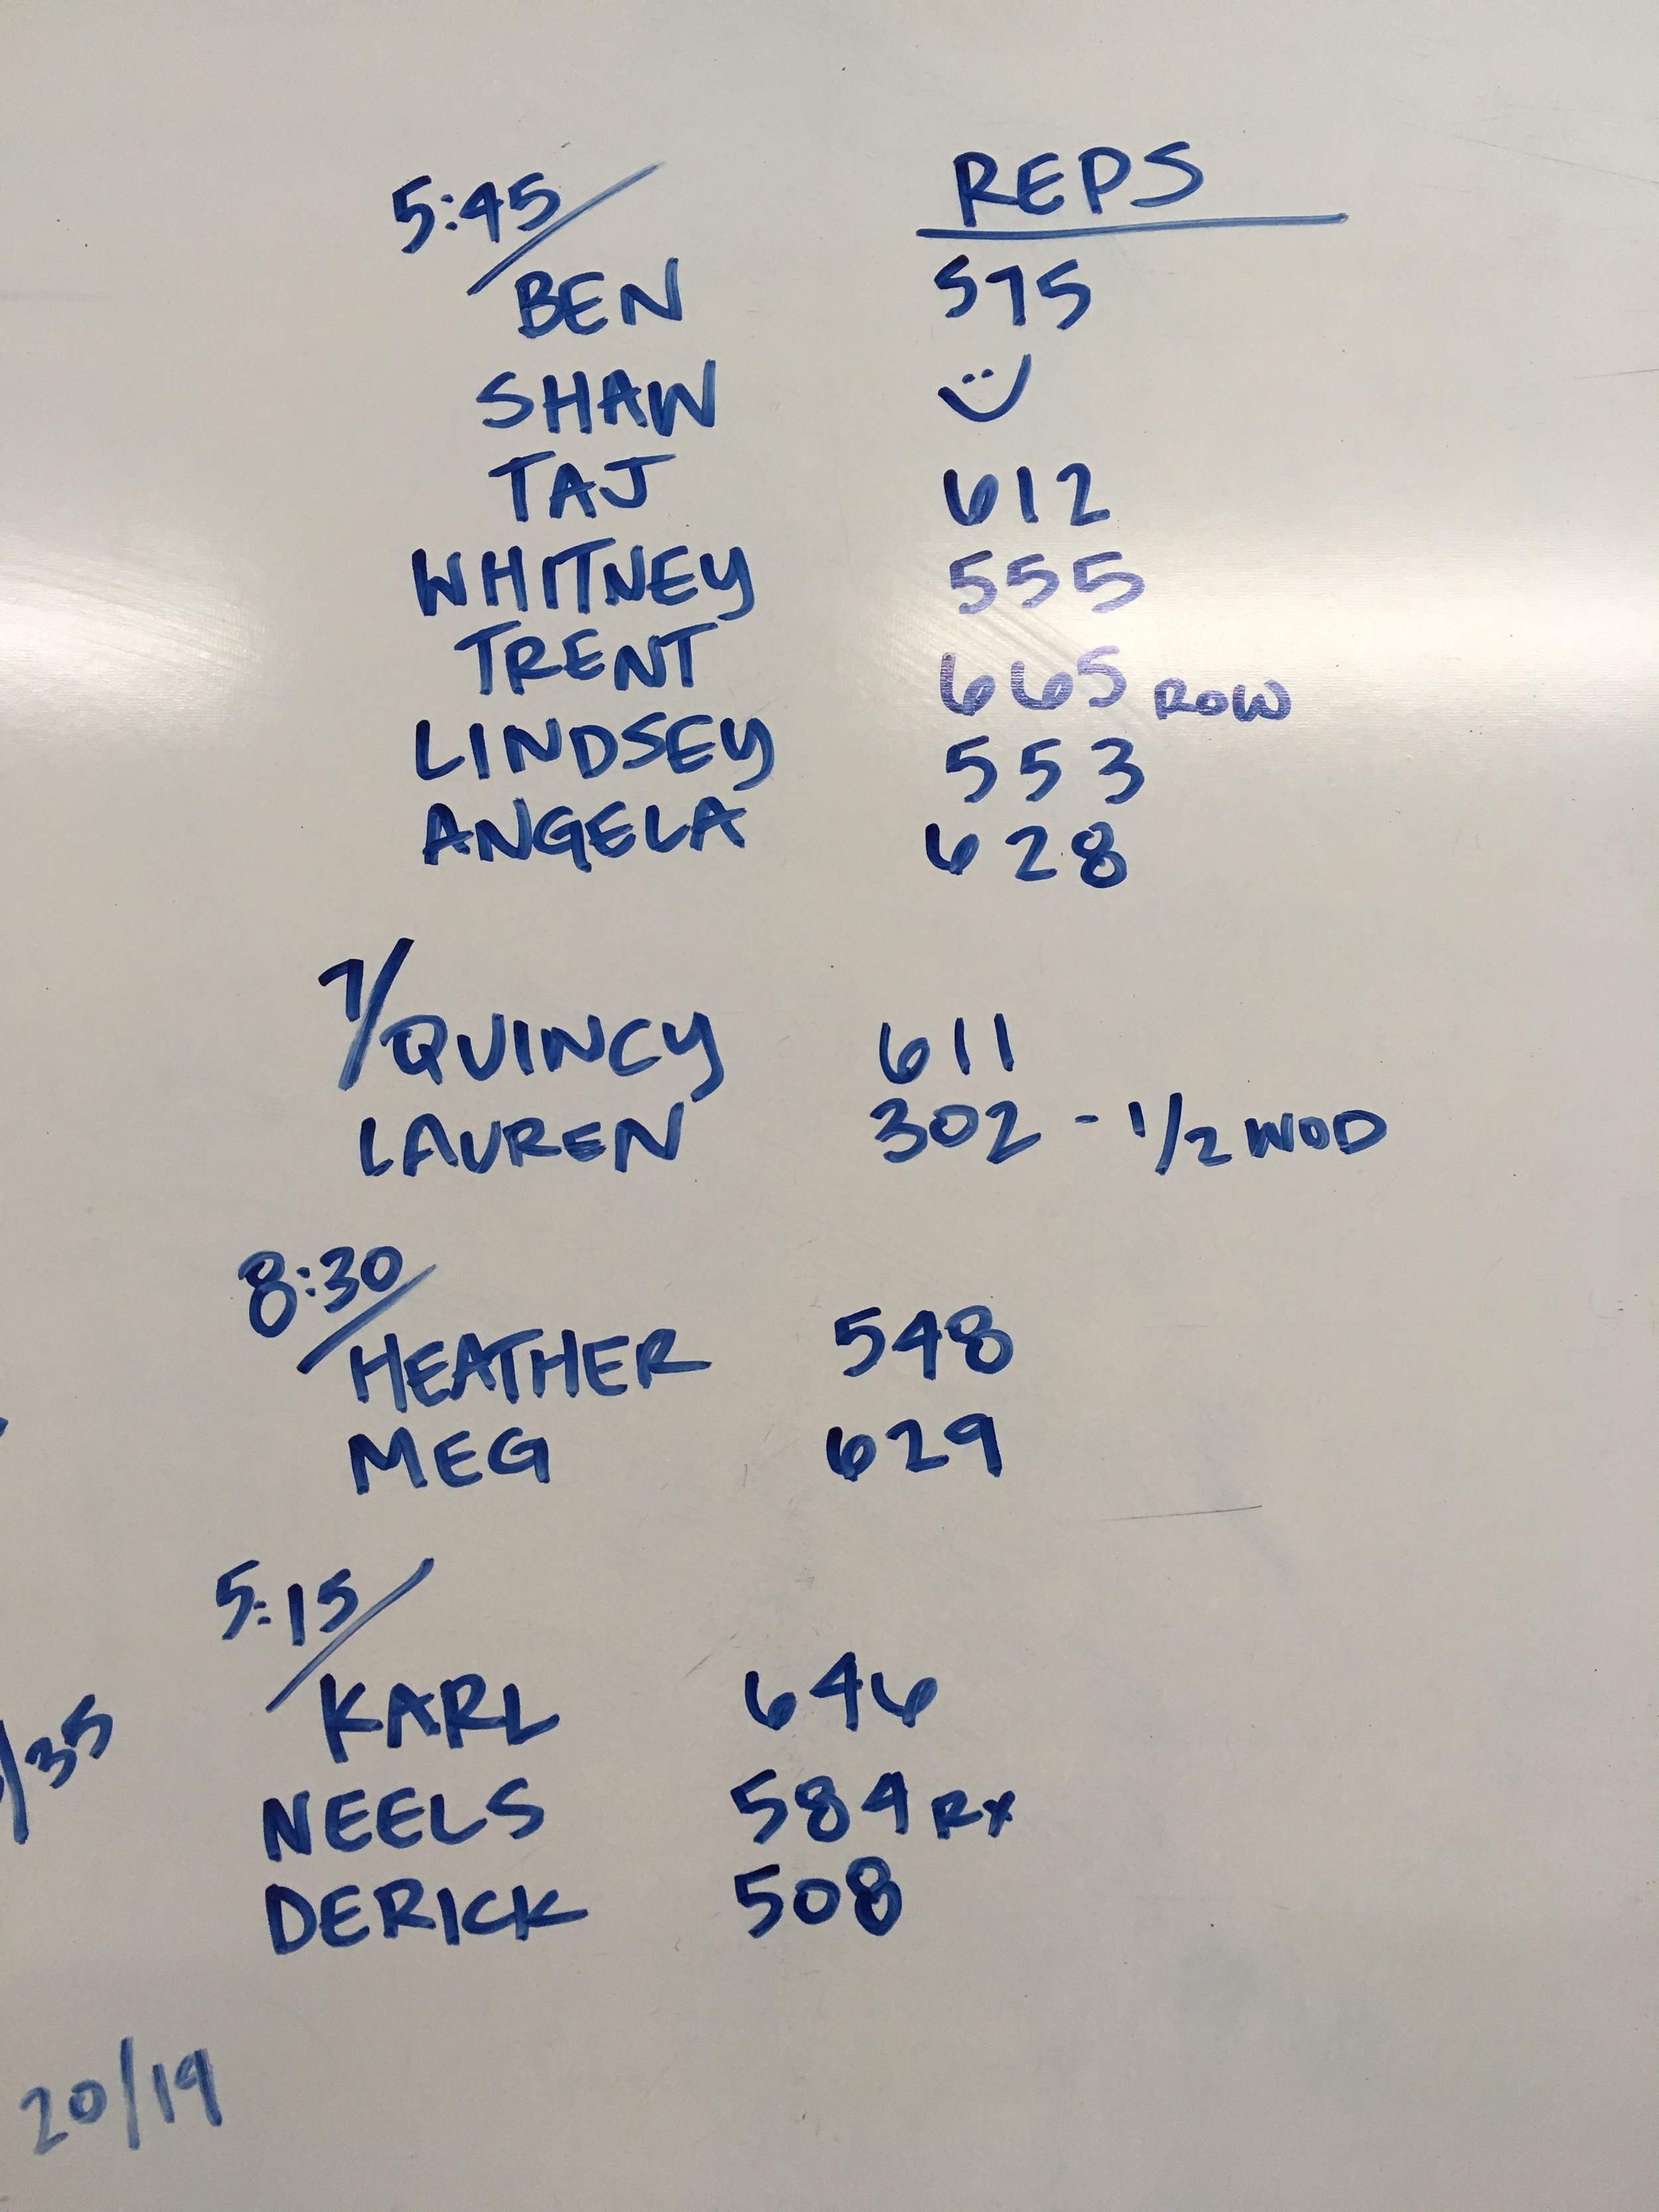 5:45/ REPS
BEN 575
SHAW
TAJ 612
WHITNEY 555
TRENT 665 ROW
LINDSEY 553
ANGELA 628
7/QUINCY 611
LAUREN 302 - 1/2 WOD
8:30/
HEATHER 548
MEG 629
5:15/
KARL 646
/35
NEELS 584 RX
DERICK 508
20/19